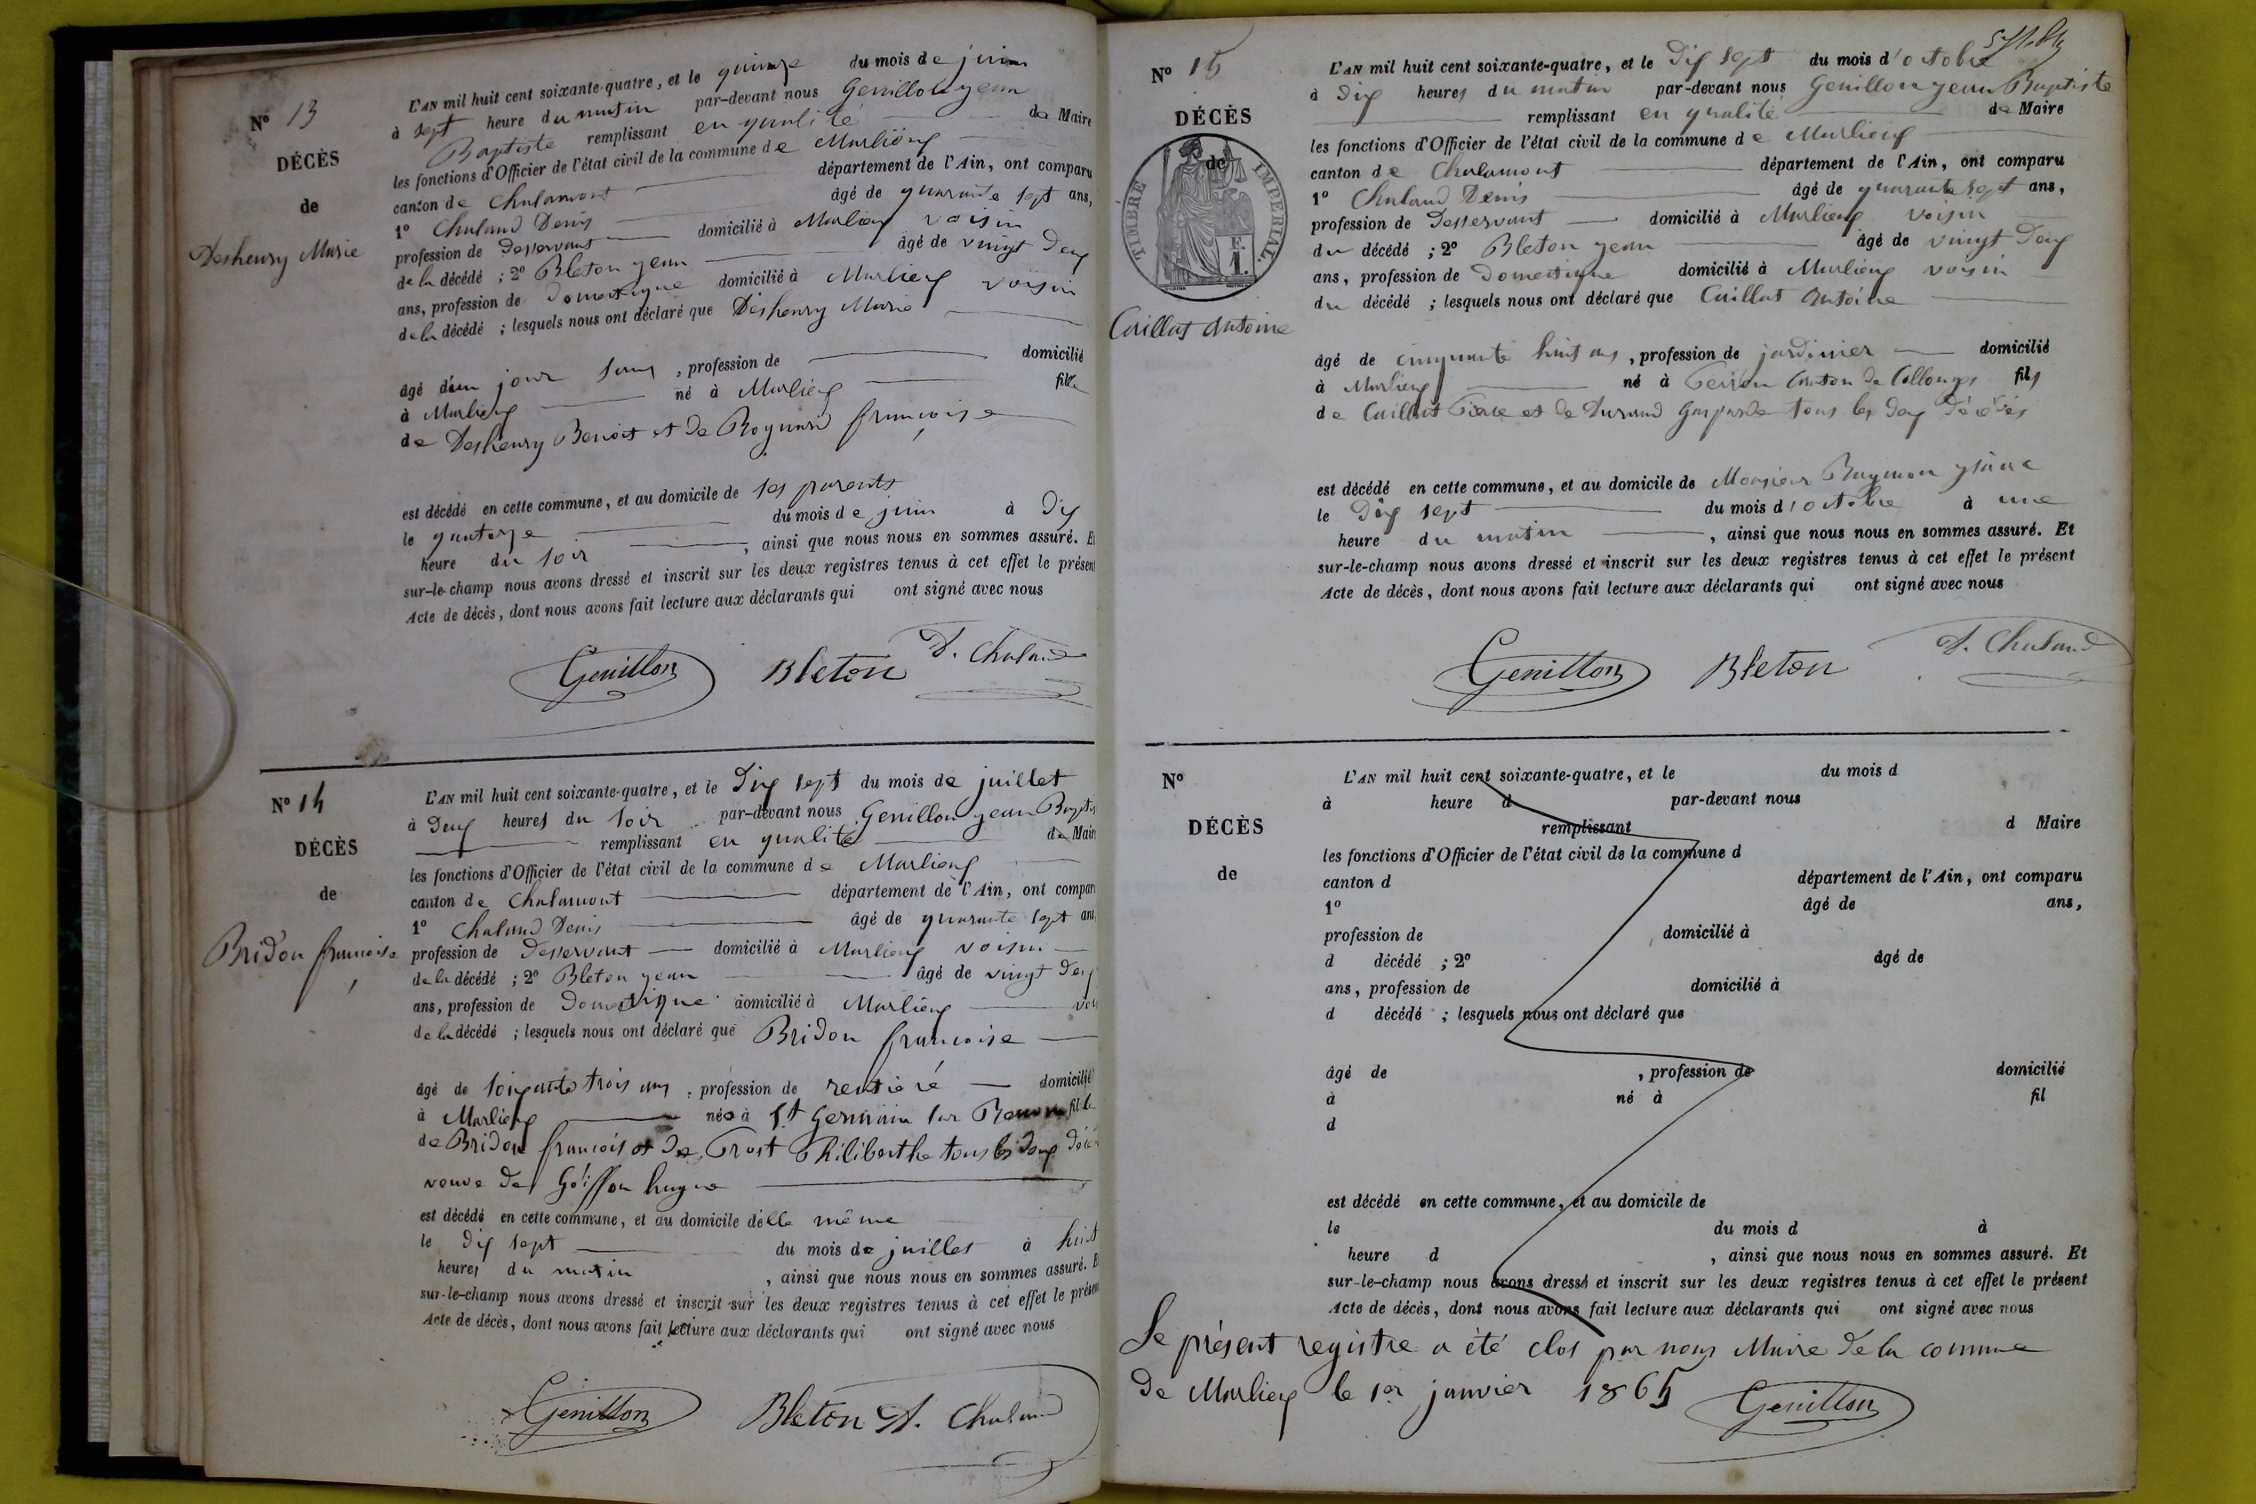 N° 13
DÉCÈS
de
Desheury Marie
L'AN mil huit cent soixante-quatre, et le quinze du mois de juin
à sept heure du matin par-devant nous Genillon jean
Baptiste remplissant en qualité de Maire
les fonctions d'Officier de l'état civil de la commune de Marlieux
canton de Chalamont département de l'Ain, ont comparu
1° Chaland Denis âgé de quarante sept ans,
profession de Desservant domicilié à Marlieux voisin
de la décédé ; 2° Bleton jean âgé de vingt deux
ans, profession de domestique domicilié à Marlieux voisin
de la décédé ; lesquels nous ont déclaré que Desheury Marie
âgé d'un jour sans, profession de domicilié
à Marlieux né à Marlieux fille
de Desheury Benoit et de Roynard françoise
est décédé en cette commune, et au domicile de ses parents
le quatorze du mois de juin à Dix
heure du soir, ainsi que nous nous en sommes assuré. Et
sur-le-champ nous avons dressé et inscrit sur les deux registres tenus à cet effet le présent
Acte de décès, dont nous avons fait lecture aux déclarants qui ont signé avec nous
Genillon Bleton D. Chaland
N° 14
DÉCÈS
de
Bridon françoise
L'AN mil huit cent soixante-quatre, et le Dix sept du mois de juillet
à Deux heures du soir par-devant nous Genillon jean Baptis
remplissant en qualité de Maire
les fonctions d'Officier de l'état civil de la commune de Marlieux
canton de Chalamont département de l'Ain, ont comparu
1° Chaland Denis âgé de quarante sept ans,
profession de Desservant domicilié à Marlieux voisin
de la décédé ; 2° Bleton jean âgé de vingt deux
ans, profession de Domestique domicilié à Marlieux voi
de la décédé ; lesquels nous ont déclaré que Bridon françoise
âgé de soixante trois ans, profession de rentière domicilié
à Marlieux née à St Germain sur Renon fille
de Bridon françois et de Trost Philiberthe tous les deux décé
veuve de Goiffon hugue
est décédé en cette commune, et au domicile delle même
le dix sept du mois de juillet à huit
heures du matin, ainsi que nous nous en sommes assuré. Et
sur-le-champ nous avons dressé et inscrit sur les deux registres tenus à cet effet le présent
Acte de décès, dont nous avons fait lecture aux déclarants qui ont signé avec nous
Genillon Bleton D. Chaland
N° 15
DÉCÈS
de
TIMBRE IMPÉRIAL.
Caillat Antoine
L'AN mil huit cent soixante-quatre, et le Dix sept du mois d'octobre
à Dix heures du matin par-devant nous Genillon jean Baptiste
remplissant en qualité de Maire
les fonctions d'Officier de l'état civil de la commune de Marlieux
canton de Chalamont département de l'Ain, ont comparu
1° Chaland Denis âgé de quarante sept ans,
profession de Desservant domicilié à Marlieux voisin
du décédé ; 2° Bleton jean âgé de vingt Deux
ans, profession de Domestique domicilié à Marlieux voisin
du décédé ; lesquels nous ont déclaré que Caillat Antoine
âgé de cinquante huit ans, profession de jardinier domicilié
à Marlieux né à canton de Collonges fils
de Caillat Pierre et de Durand Gasparde tous les deux décédés
est décédé en cette commune, et au domicile de Monsieur
le Dix sept du mois d'octobre à une
heure du matin, ainsi que nous nous en sommes assuré. Et
sur-le-champ nous avons dressé et inscrit sur les deux registres tenus à cet effet le présent
Acte de décès, dont nous avons fait lecture aux déclarants qui ont signé avec nous
Genillon Bleton D. Chaland
N°
DÉCÈS
de
L'AN mil huit cent soixante-quatre, et le du mois d
à heure d par-devant nous
remplissant d Maire
les fonctions d'Officier de l'état civil de la commune d
canton d département de l'Ain, ont comparu
1° âgé de ans,
profession de domicilié à
d décédé ; 2° âgé de
ans, profession de domicilié à
d décédé ; lesquels nous ont déclaré que
âgé de , profession de domicilié
à né à fil
d
est décédé en cette commune, et au domicile de
le du mois d à
heure d , ainsi que nous nous en sommes assuré. Et
sur-le-champ nous avons dressé et inscrit sur les deux registres tenus à cet effet le présent
Acte de décès, dont nous avons fait lecture aux déclarants qui ont signé avec nous
Le présent registre a été clos par nous Maire de la commune
de Marlieux le 1er janvier 1865 Genillon